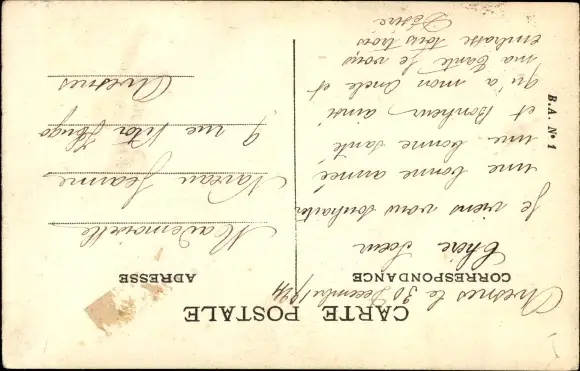 CARTE POSTALE
CORRESPONDANCE
ADRESSE
Avesnes le 30 Decembre 1924
Chère Soeur
Je viens vous souhaiter
une bonne année
une bonne santé
et Bonheur ainsi
qu'a mon Oncle et
ma Tante Je vous
embrasse tous trois
Désiré
Mademoiselle
Naveau Jeanne
9 rue Victor Hugo
Avesnes
B.A. No 1